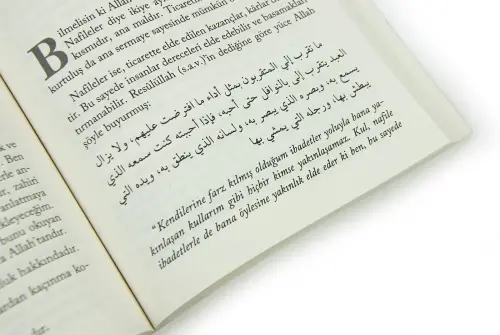 Bilmelisin ki Allah
Nafileler diye ikiye ay
kısmıdır, ana maldır. Ticaretin
kurtuluş da ana sermaye sayesinde mümkün
Nafileler ise, ticarette elde edilen kazançlar, kârlar
tir. Bu sayede insanlar dereceleri elde edebilir ve basamakları
tırmanabilir. Resûlüllah (s.a.v.)'in dediğine göre yüce Allah
şöyle buyurmuş:
ما تقرب إلى المتقربون بمثل أداء ما افترضت عليهم، ولا يزال
العبد يتقرب إلى بالنوافل حتى أحبه، فإذا أحببته كنت سمعه الذي
يسمع به، وبصره الذي يبصر به، ولسانه الذي ينطق به، ويده التي
يبطش بها، ورجله التي يمشي بها
"Kendilerine farz kılmış olduğum ibadetler yoluyla bana ya-
kınlaşan kullarım gibi hiçbir kimse yakınlaşamaz. Kul, nafile
ibadetlerle de bana öylesine yakınlık elde eder ki ben, bu sayede
k ve
Ben
le an-
zahiri
anlatmaya
kleyeceğim.
bunu okuyan
a Allah'tandır.
luk hakkındadır.
ardan kaçınma ko-
dır.